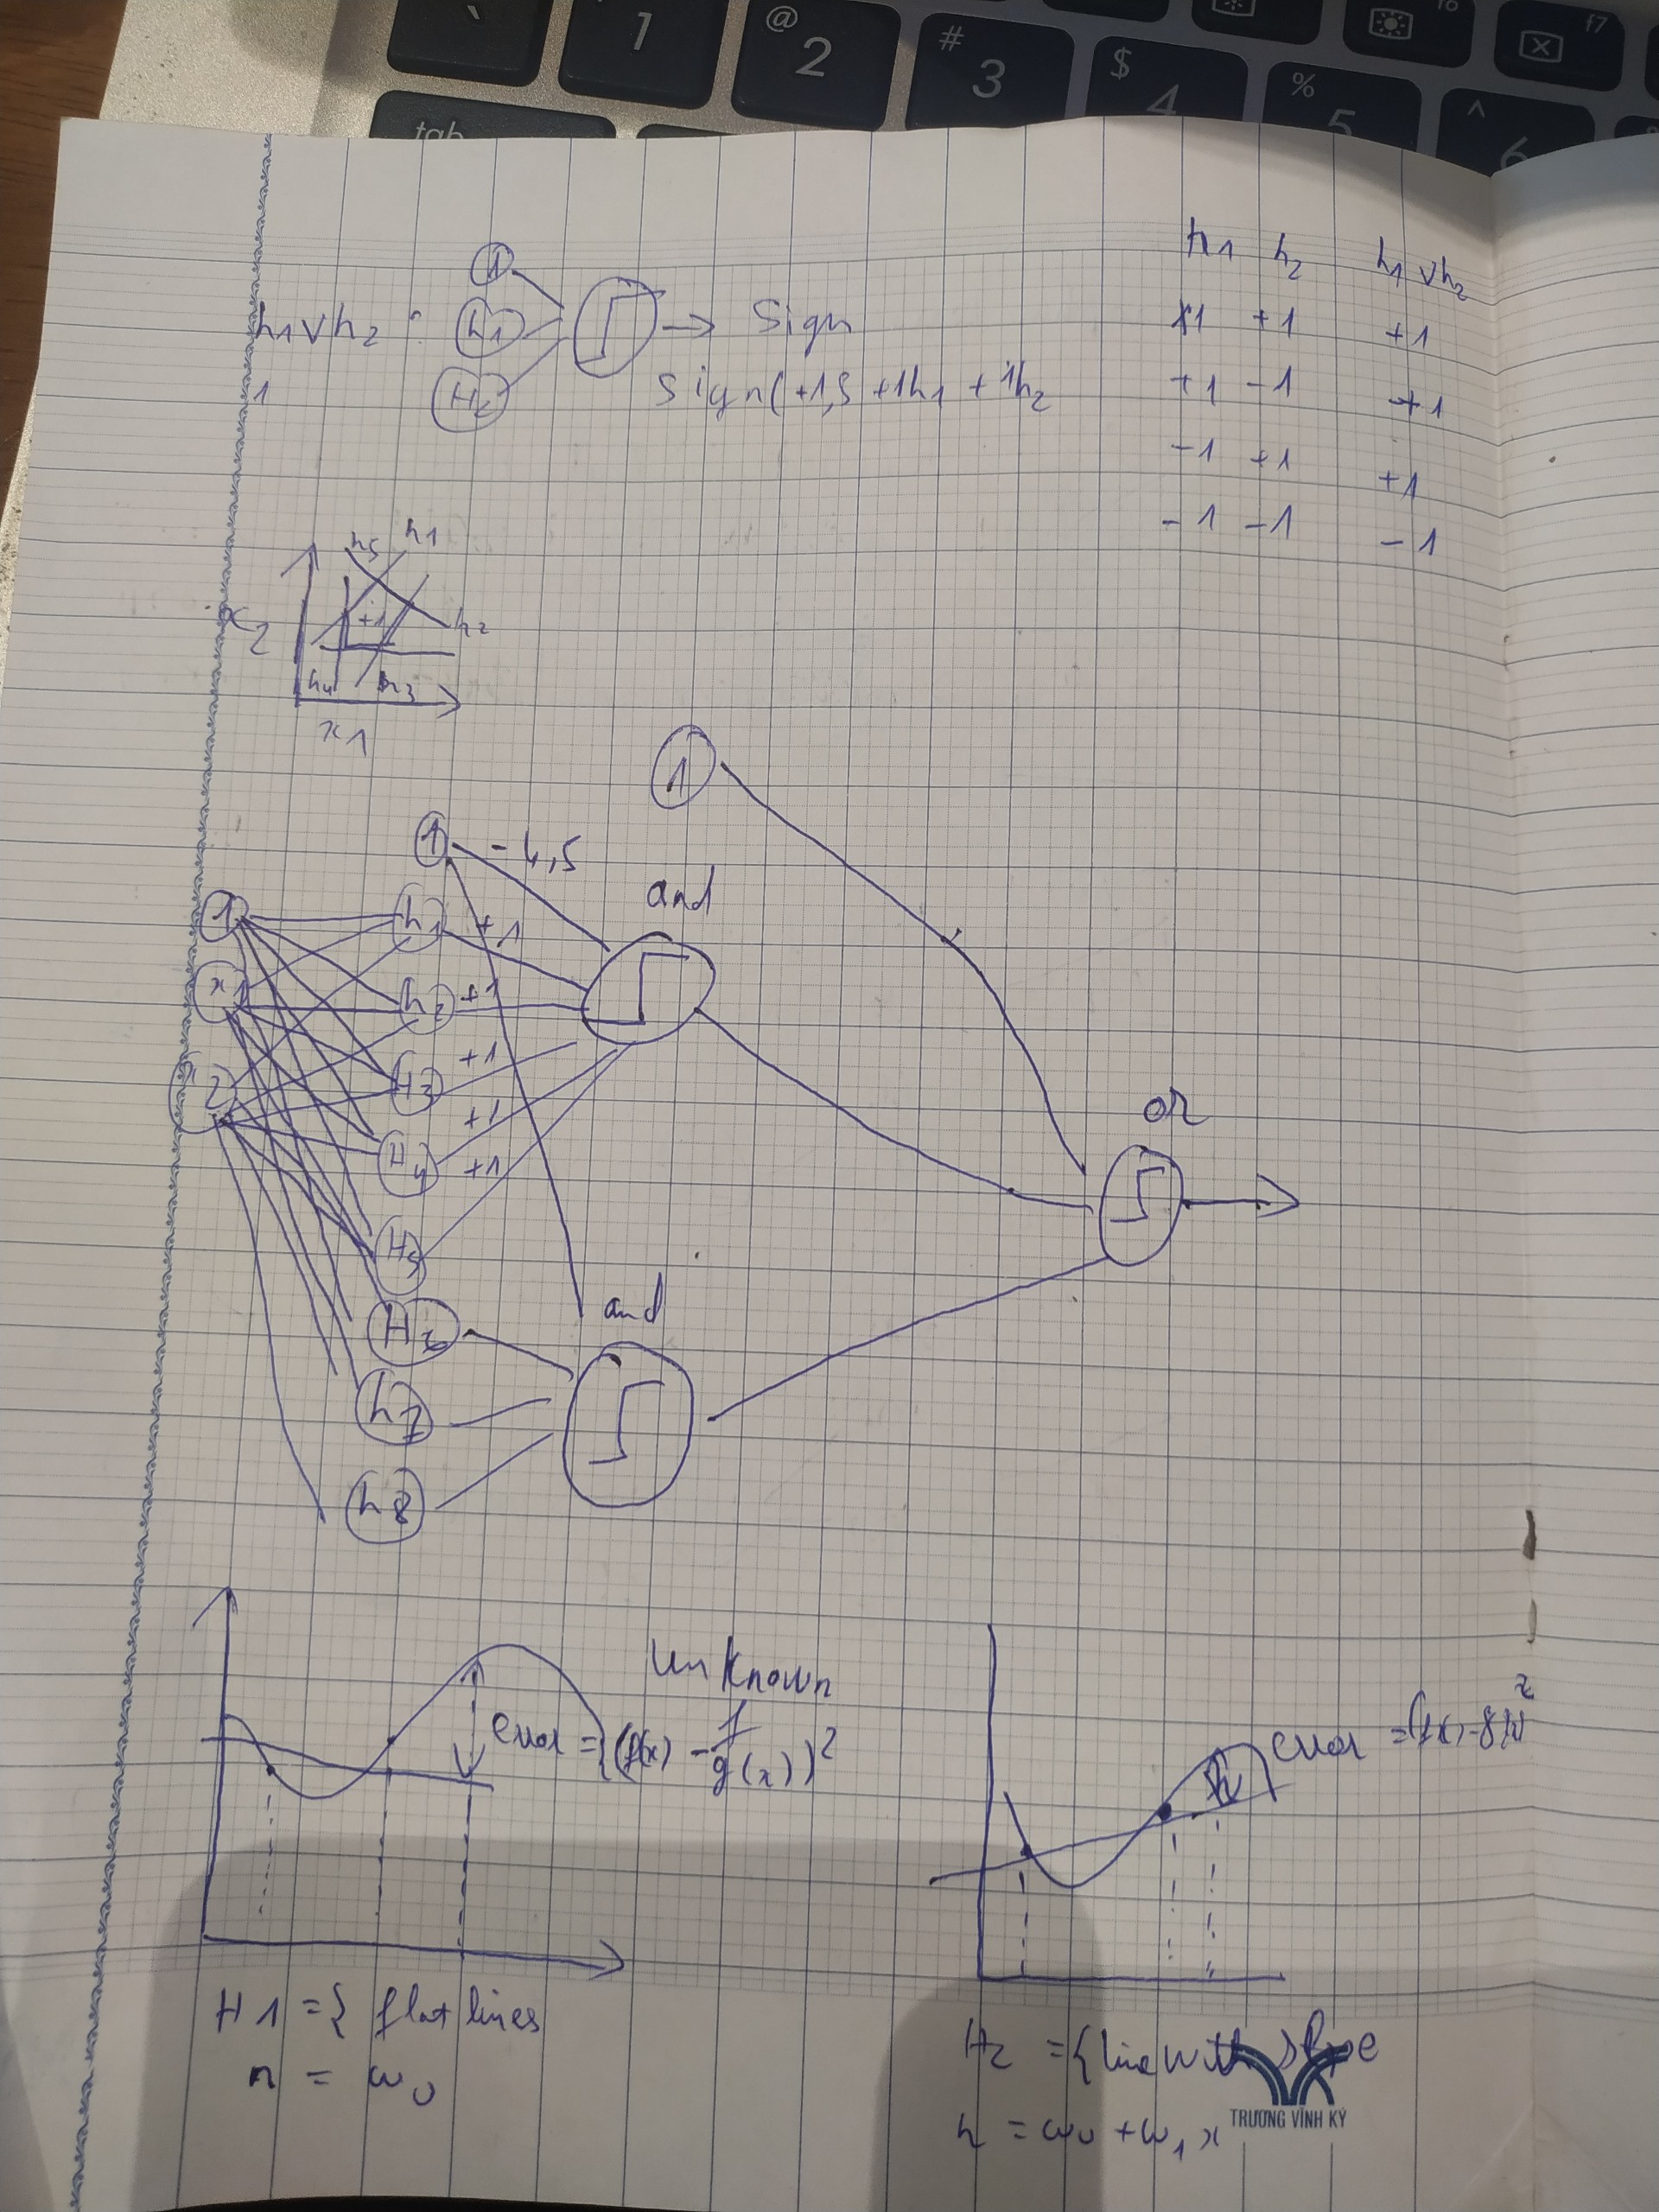 `
1
@
2
#
3
$
4
%
5
^
6
f6
f7
tab
1
h1 v h2 :
h1
H2
→ Sign
1
Sign(+1,5 +1h1 + 1h2
h1 h2 h1 v h2
+1 +1 +1
+1 -1 +1
-1 +1 +1
-1 -1 -1
h5 h1
x2
+1
h2
h4 h3
x1
1
1 -4,5
and
1
h1 +1
x1
h2 +1
2
H3 +1
H4 +1
H5 +1
or
H6
and
h7
h8
unknown
f
error = {(f(x) - g(x))²
error = (f(x) - g(x)²
H1 = { flat lines
h = w0
H2 = {line with slope
h = w0 + w1 x
TRƯƠNG VĨNH KÝ